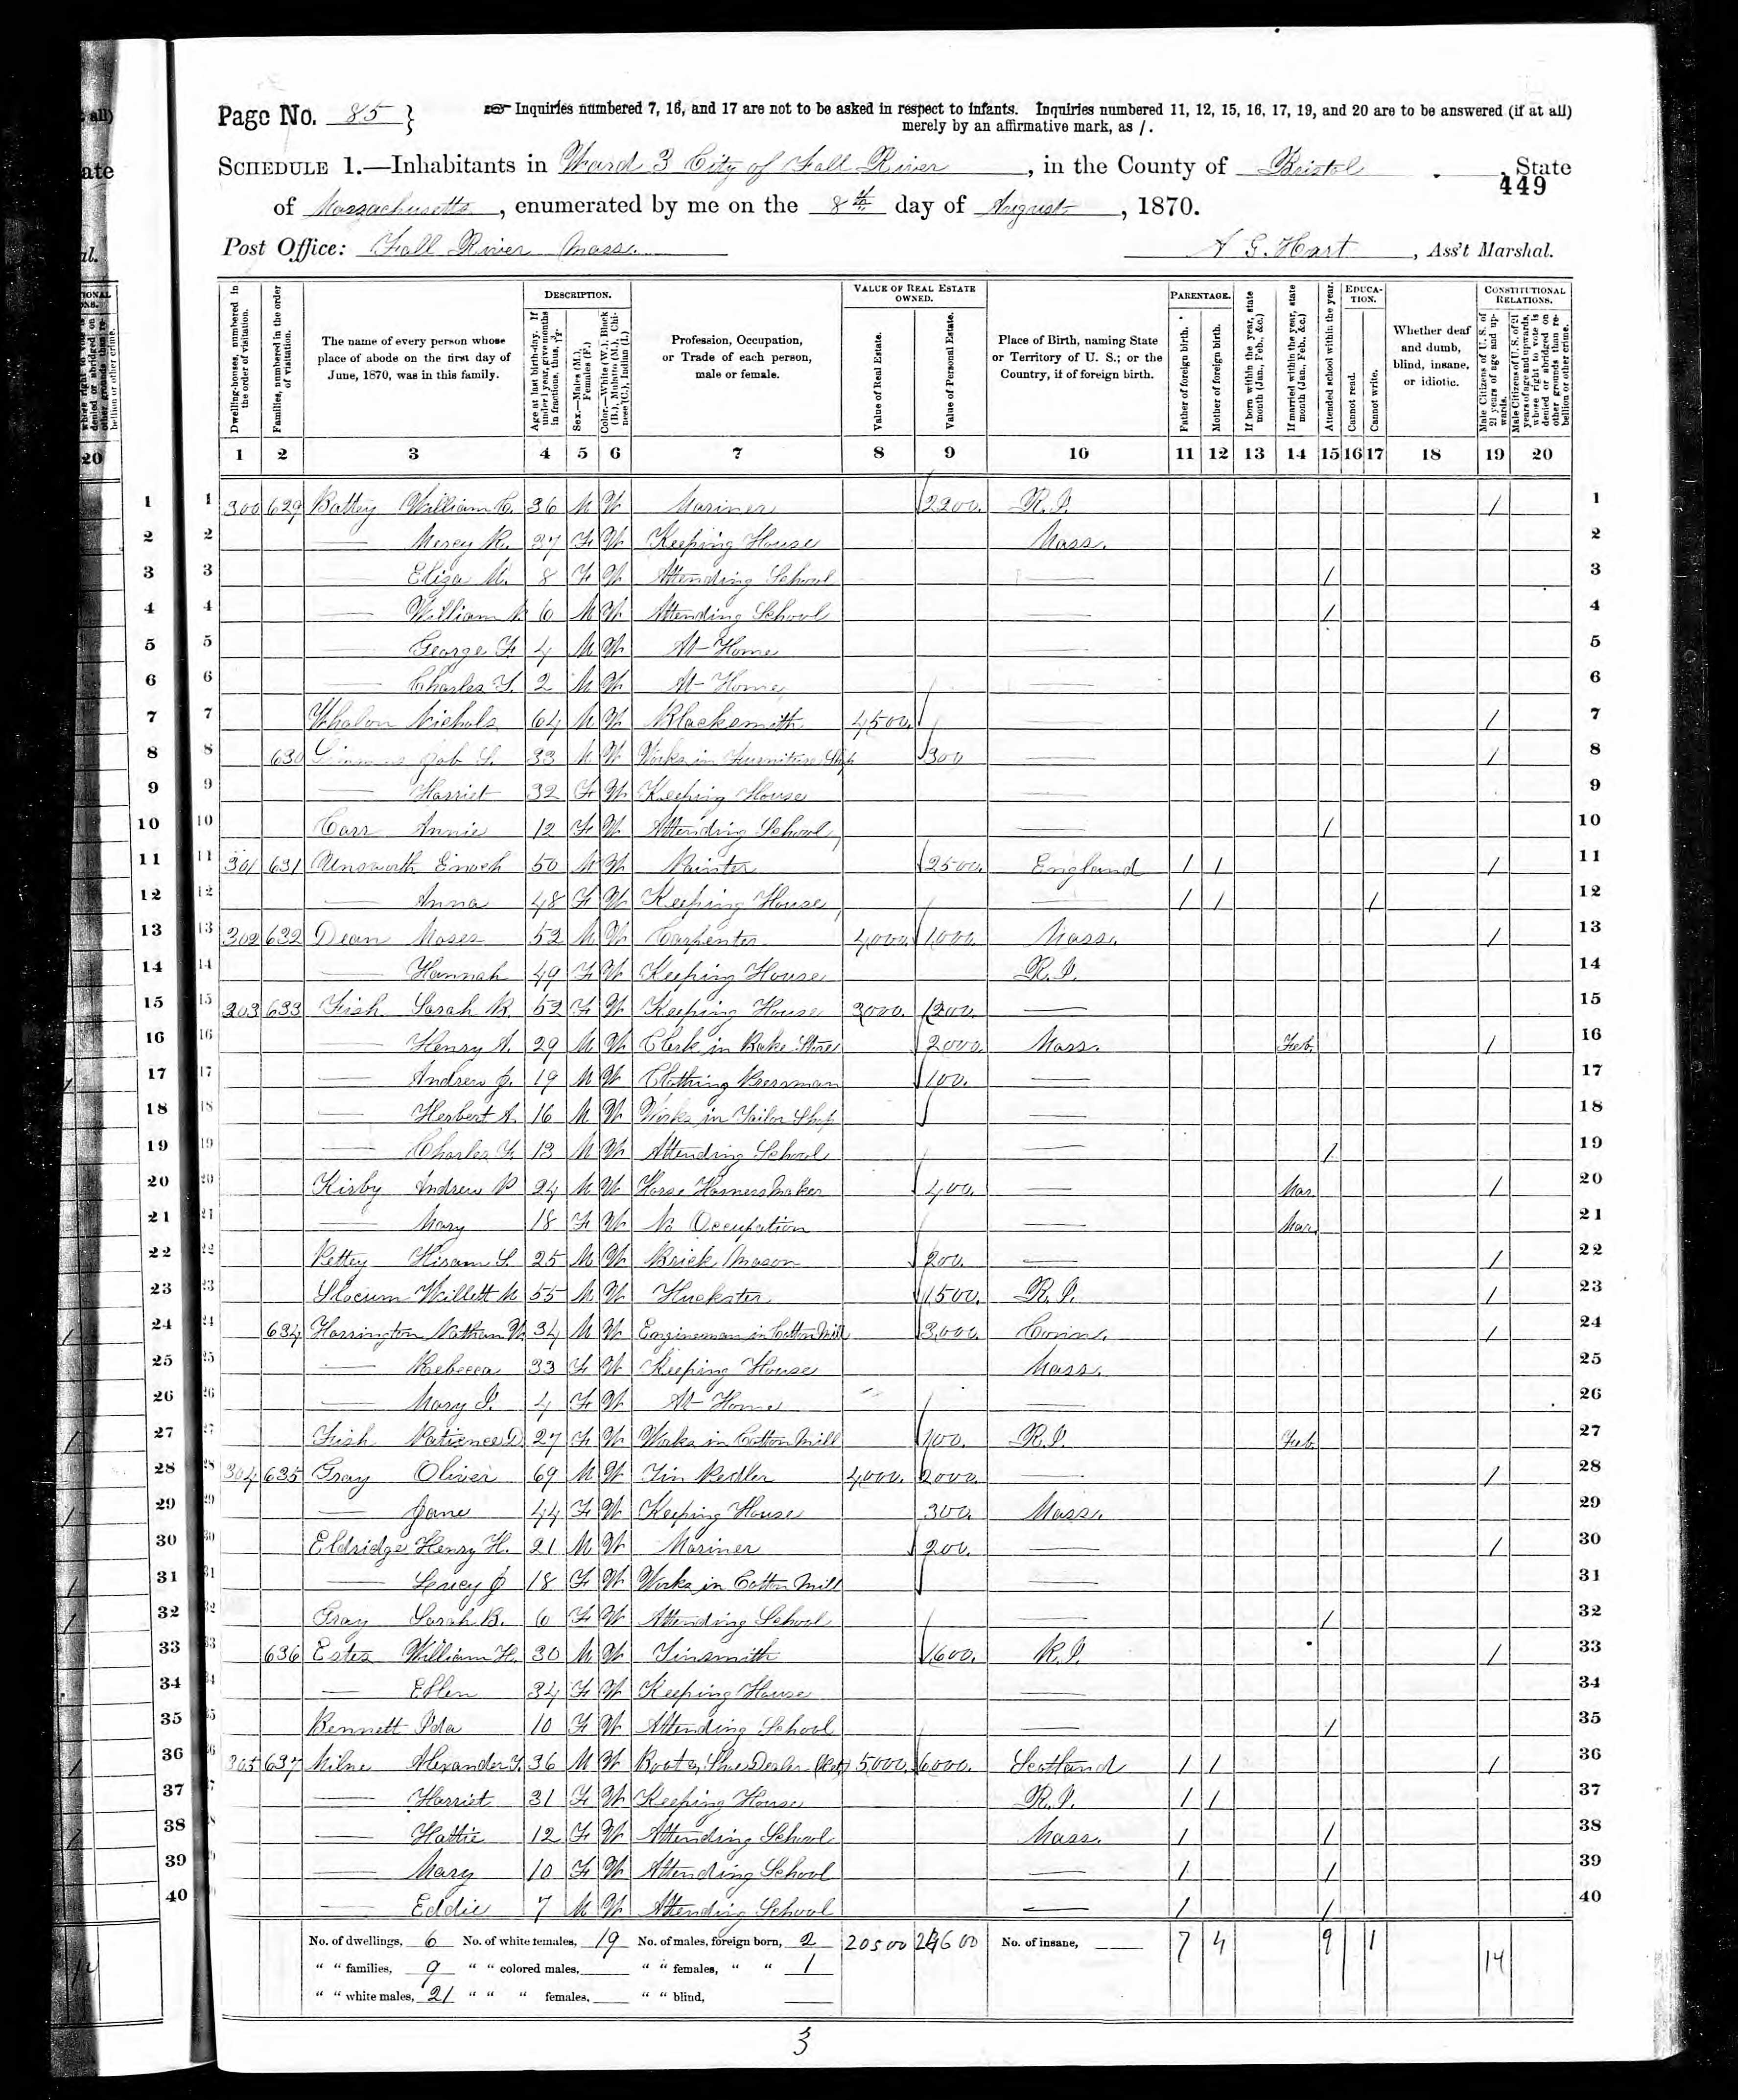 Page No. 85 } Inquiries numbered 7, 16, and 17 are not to be asked in respect to infants. Inquiries numbered 11, 12, 15, 16, 17, 19, and 20 are to be answered (if at all)
merely by an affirmative mark, as /.
SCHEDULE 1.—Inhabitants in Ward 3 City of Fall River, in the County of Bristol, State
449
of Massachusetts, enumerated by me on the 8th day of August, 1870.
Post Office: Fall River Mass. A G. Hart, Ass't Marshal.
Dwelling-houses, numbered in the order of visitation.
Families, numbered in the order of visitation.
The name of every person whose place of abode on the first day of June, 1870, was in this family.
DESCRIPTION.
Age at last birth-day. If under 1 year, give months in fractions, thus, 3/12.
Sex.—Males (M.), Females (F.)
Color.—White (W.), Black (B.), Mulatto (M.), Chinese (C.), Indian (I.)
Profession, Occupation, or Trade of each person, male or female.
VALUE OF REAL ESTATE OWNED.
Value of Real Estate.
Value of Personal Estate.
Place of Birth, naming State or Territory of U. S.; or the Country, if of foreign birth.
PARENTAGE.
Father of foreign birth.
Mother of foreign birth.
If born within the year, state month (Jan., Feb., &c.)
If married within the year, state month (Jan., Feb., &c.)
Attended school within the year.
EDUCATION.
Cannot read.
Cannot write.
Whether deaf and dumb, blind, insane, or idiotic.
CONSTITUTIONAL RELATIONS.
Male Citizens of U. S. of 21 years of age and upwards.
Male Citizens of U. S. of 21 years of age and upwards, whose right to vote is denied or abridged on other grounds than rebellion or other crime.
1 2 3 4 5 6 7 8 9 10 11 12 13 14 15 16 17 18 19 20
1 300 629 Battey William C. 36 M W Mariner 2200. R.I. / 1
2 — Mercy R. 37 F W Keeping House Mass. 2
3 — Eliza M. 8 F W Attending School — / 3
4 — William 6 M W Attending School — / 4
5 — George F. 4 M W At Home — 5
6 — Charles 2 M W At Home — 6
7 Whalon Nichols 64 M W Blacksmith 4500. — / 7
8 630 Job S. 33 M W Works in Furniture Shop 300 — / 8
9 — Harriet 32 F W Keeping House — 9
10 Carr Annie 12 F W Attending School — / 10
11 301 631 Unsworth Enoch 50 M W Painter 2500. England / / / 11
12 — Anna 48 F W Keeping House — / / / 12
13 302 632 Dean Moses 52 M W Carpenter 4,000. 1,000. Mass. / 13
14 — Hannah 49 F W Keeping House R.I. 14
15 303 633 Fish Sarah R. 52 F W Keeping House 3000. 1200. — 15
16 — Henry A. 29 M W Clerk in Bake Store 2000. Mass. Feb. / 16
17 — Andrew J. 19 M W Clothing Pressman 100. — 17
18 — Herbert A. 16 M W Works in Tailor Shop — 18
19 — Charles F. 13 M W Attending School — / 19
20 Kirby Andrew P. 24 M W Horse Harness Maker 400. — Mar. / 20
21 — Mary 18 F W No Occupation — Mar. 21
22 Pettey Hiram S. 25 M W Brick Mason 200. — / 22
23 Slocum Willett M 55 M W Huckster 1500. R.I. / 23
24 634 Harrington Nathan W. 34 M W Engineman in Cotton Mill 3,000. Conn. / 24
25 — Rebecca 33 F W Keeping House Mass. 25
26 — Mary J. 4 F W At Home — 26
27 Fish Patience D. 27 F W Works in Cotton Mill 100. R.I. Feb. 27
28 304 635 Gray Oliver 69 M W Tin Pedler 4,000. 2000. — / 28
29 — Jane 44 F W Keeping House 300. Mass. 29
30 Eldridge Henry H. 21 M W Mariner 200. — / 30
31 — Lucy J 18 F W Works in Cotton Mill — 31
32 Gray Sarah B. 6 F W Attending School — / 32
33 636 Estes William H. 30 M W Tinsmith 1600. R.I. / 33
34 — Ellen 34 F W Keeping House — 34
35 Bennett Ida 10 F W Attending School — / 35
36 305 637 Milne Alexander T. 36 M W Boot & Shoe Dealer (Ret) 5,000. 6000. Scotland / / / 36
37 — Harriet 31 F W Keeping House R.I. / / 37
38 — Hattie 12 F W Attending School Mass. / / 38
39 — Mary 10 F W Attending School — / / 39
40 — Eddie 7 M W Attending School — / / 40
No. of dwellings, 6 No. of white females, 19 No. of males, foreign born, 2 20500 No. of insane, 7 4 9 1 14
" " families, 9 " " colored males, " " females, " " 1
" " white males, 21 " " " females, " " blind,
3